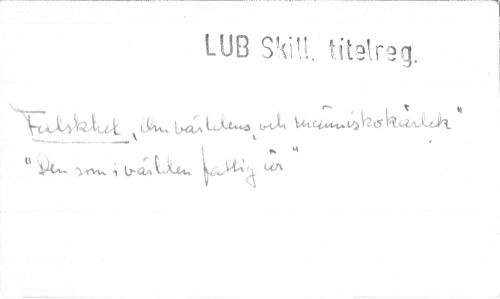 LUB Skill. titelreg.
Falskhet, Om världens, och människokärlek"
"Den som i världen fattig är"